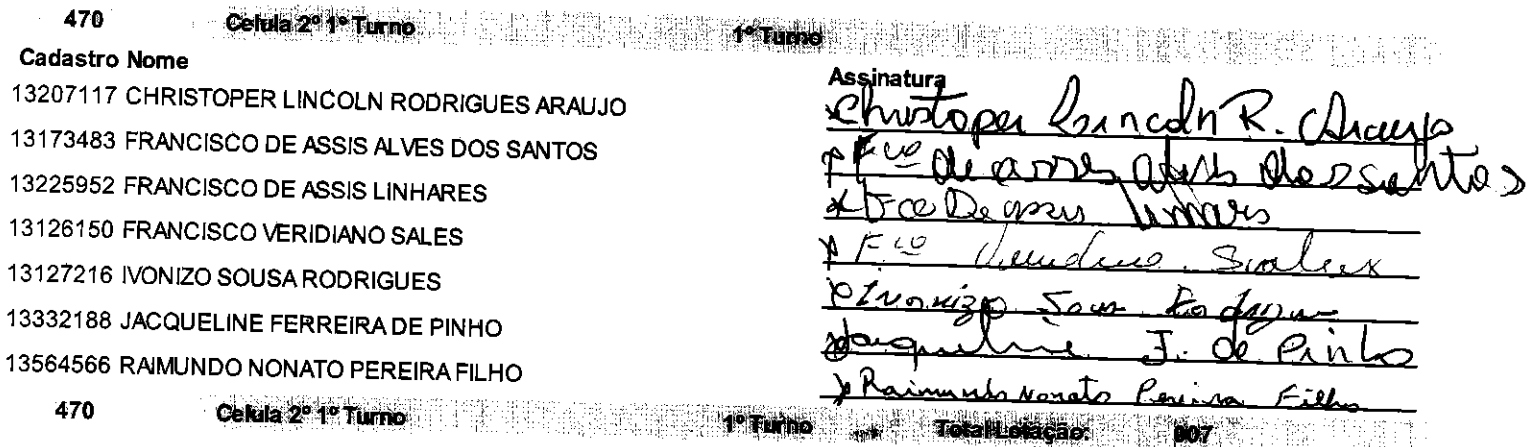 470 Celula 2º 1º Turno 1º Turno
Cadastro Nome Assinatura
13207117 CHRISTOPER LINCOLN RODRIGUES ARAUJO Christoper Lincoln R. Araujo
13173483 FRANCISCO DE ASSIS ALVES DOS SANTOS Fco de assis alves dos santos
13225952 FRANCISCO DE ASSIS LINHARES Fco De assis linhares
13126150 FRANCISCO VERIDIANO SALES Fco
13127216 IVONIZO SOUSA RODRIGUES Ivonizo Sousa
13332188 JACQUELINE FERREIRA DE PINHO Jacqueline F. de Pinho
13564566 RAIMUNDO NONATO PEREIRA FILHO Raimundo Nonato Pereira Filho
470 Celula 2º 1º Turno 1º Turno Total Lotação: 007